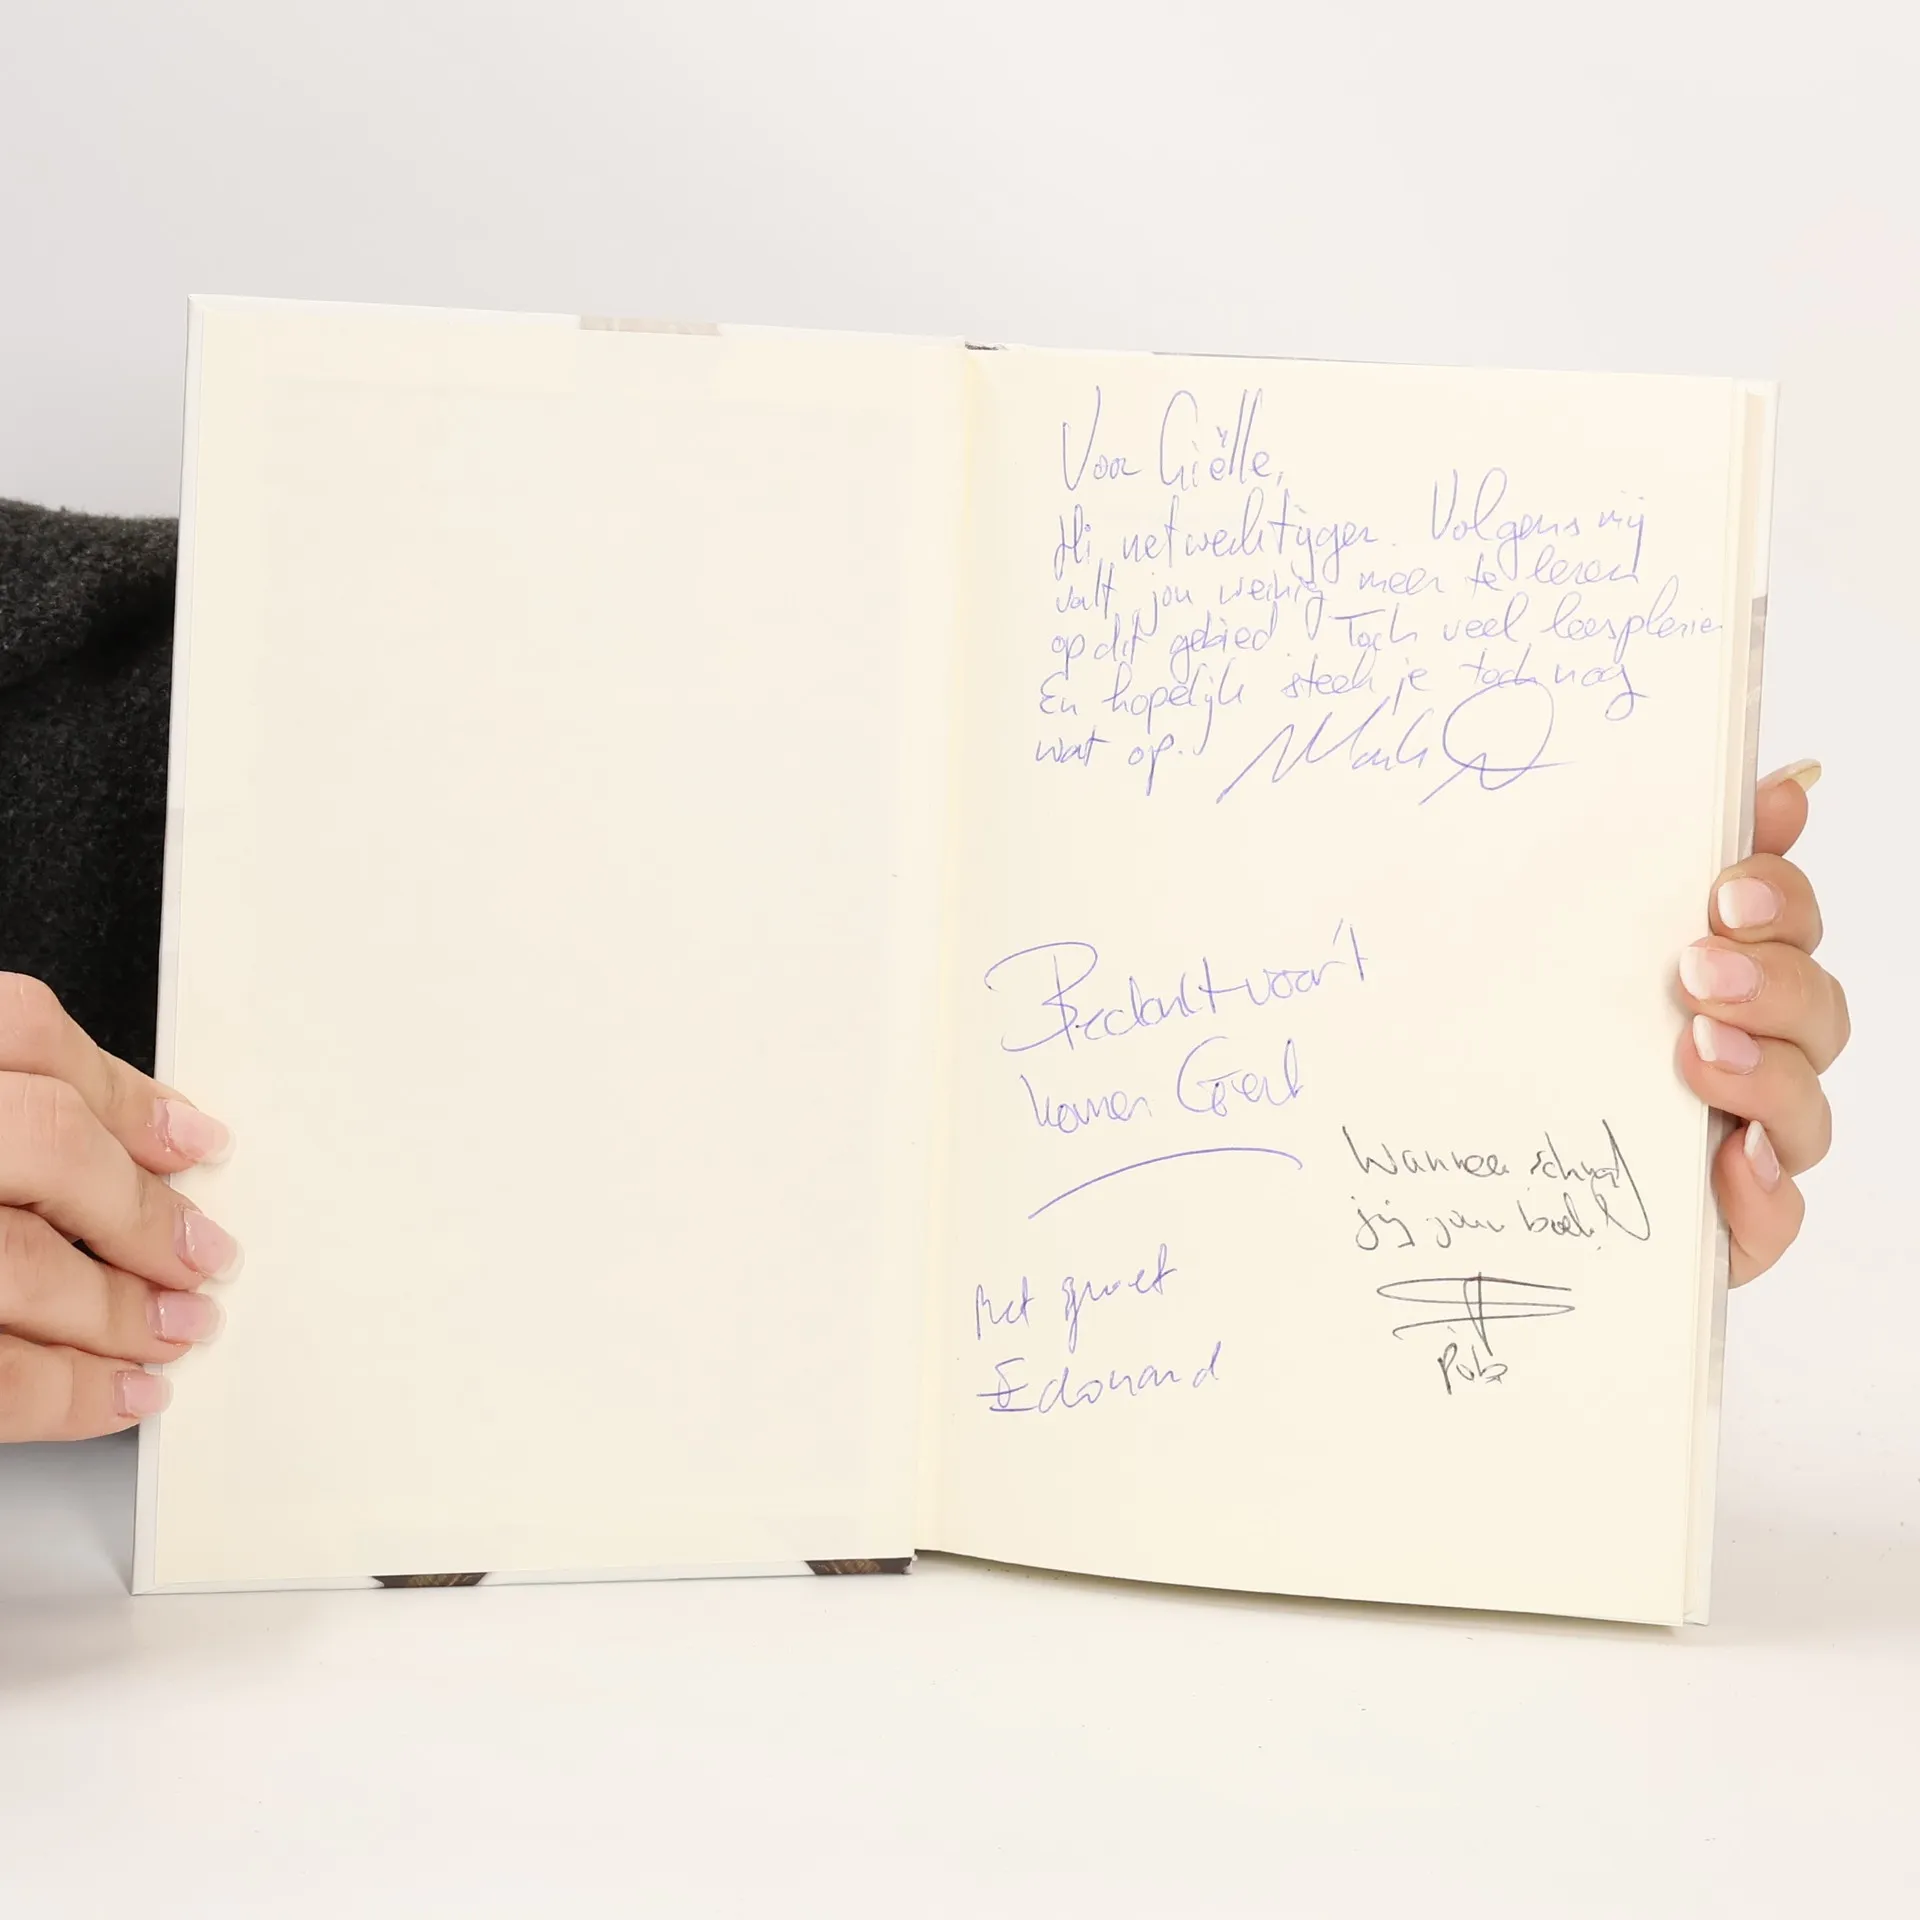 Voor Giëlle,
Hi netwerktijger. Volgens mij
valt jou weinig meer te leren
op dit gebied. Toch veel leesplezier
En hopelijk steek je toch nog
wat op. Mark
Bedankt voor 't
komen Geert
Wanneer schrijf
jij jouw boek?
Rob
Met groet
Edouard